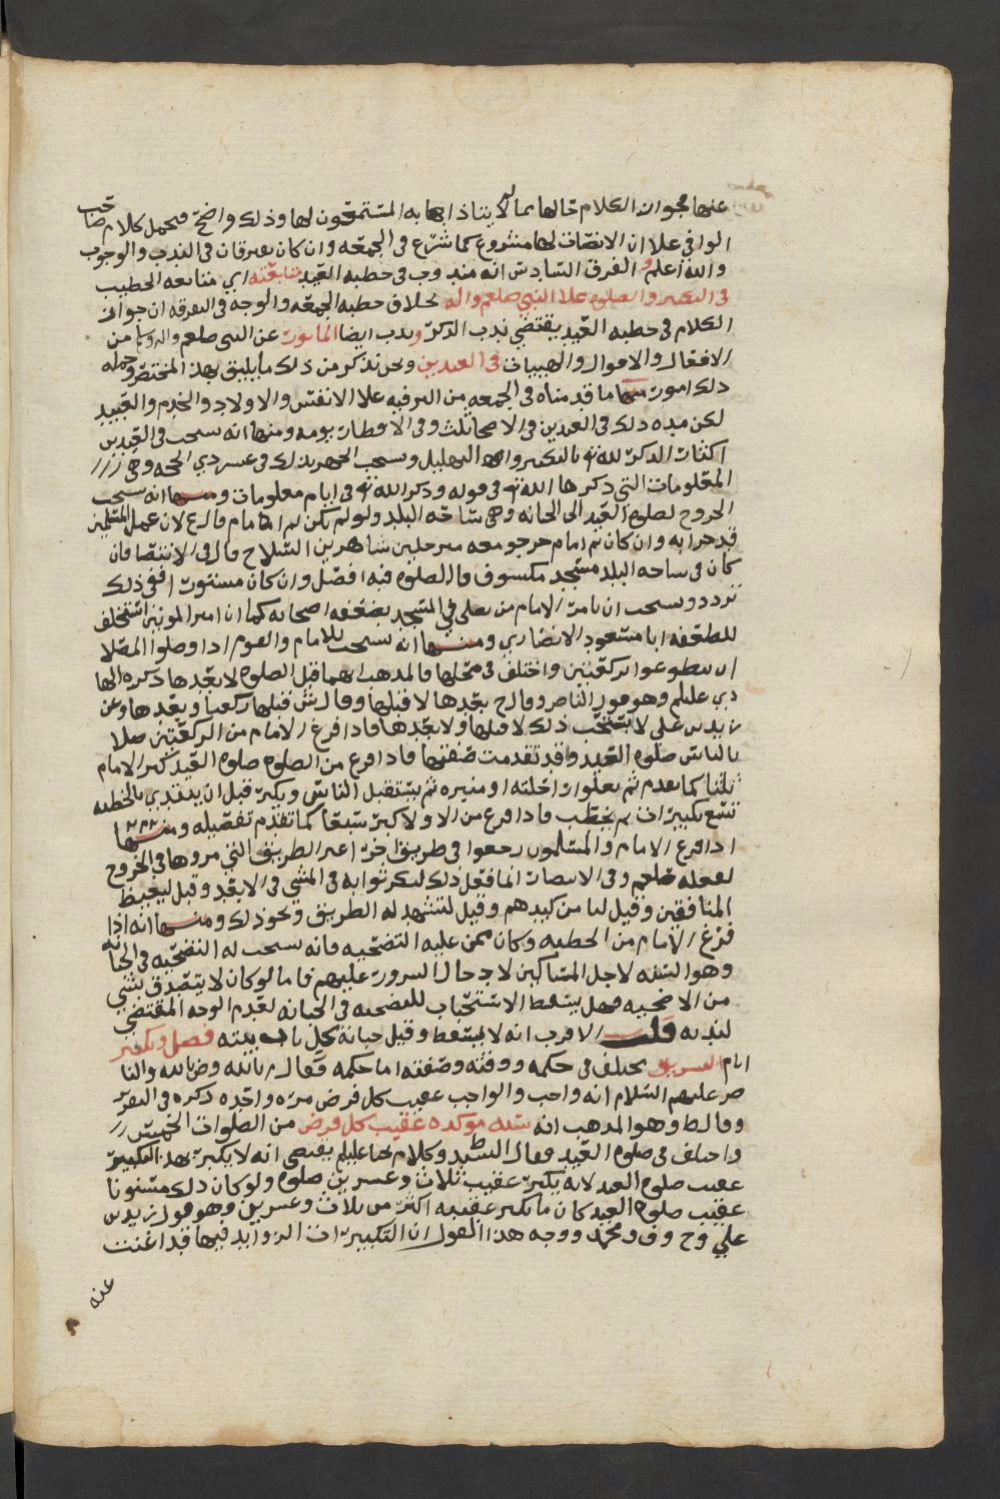 عنها بجواز الكلام حالها بما لا يتاذا بها به المستمعون لها وذلك واضح ويحمل كلام صاحب
الوافي علا ان الانصات لها مشروع كما شرع في الجمعه وان كان يفترقان في الندب والوجوب
والله اعلم و الفرق السادس انه مندوب في خطبه العيد متابعته اي متابعه الخطيب
في التكبير والصلوه علا النبي صلعم واله بخلاف خطبه الجمعه والوجه في التفرقه ان جواز
الكلام في خطبه العيد يقتضي ندب الذكر وندب ايضا الماثور عن النبي صلعم واله وسلم من
الافعال والاقوال والهييات في العيدين ونحن نذكر من ذلك ما يليق بهذا المختصر وجمله
ذلك امور منها ما قدمناه في الجمعه من الترفيه علا الانفس والاولاد والخدم والعبيد
لكن مده ذلك في العيدين في الاضحا ثلث وفي الافطار يومه ومنها انه يستحب في العيدين
اكثار الذكر لله تع بالتكبير والتهليل ويستحب الجهر بذلك في عشر ذي الحجه وهي
المعلومات التي ذكرها الله تع في قوله وذكر الله تع في ايام معلومات ومنها انه يستحب
الخروج لصلوه العيد الى الجبانه وهي ساحه البلد ولو لم يكن ثم امام قال ع لان عمل المسلمين
قد جرا به وان كان ثم امام خرجو معه مترجلين شاهرين السلاح قال في الانتصا فان
كان في ساحه البلد مسجد مكسوف فالصلوه فيه افضل وان كان مستور ا ففي ذلك
تردد ويستحب ان يامر الامام من يصلي في المسجد بضعفه اصحابه كما ان امير المومنين استخلف
للضعفه ابا مسعود الانصاري ومنها انه يستحب للامام والقوم اذا وصلوا المصلا
ان يتطوعوا بركعتين واختلف في محلها فالمذهب انهما قبل الصلوه لا بعدها ذكره الها
دي عليلم وهو قول الناصر وقال ح بعدها لا قبلها وقال ش قبلها ركعتا وبعدها وعن
زيد بن علي لا يستحب ذلك لا قبلها ولا بعدها فاذا فرغ الامام من الركعتين صلا
بالناس صلوه العيد وقد تقدمت صفتها فاذا فرغ من الصلوه صلوه العيد كبر الامام
ثلثا كما تقدم ثم يعلوا راحلته او منبره ثم يستقبل الناس ويكبر قبل ان يبتدي بالخطبه
تسع تكبيرات ثم يخطب فاذا فرغ من الاولا كبر سبعا كما تقدم تفصيله ومنها
اذا فرغ الامام والمسلمون رجعوا في طريق اخرا غير الطريق التي مروها في الخروج
لفعله صلعم وفي الانتصار انما فعل ذلك ليكثر ثوابه في المشي في الابعد وقيل ليغيظ
المنافقين وقيل ليا من كيدهم وقيل لتشهد له الطريق ونحو ذلك ومنها انه اذا
فرغ الامام من الخطبه وكان ممن عليه التضحيه فانه يستحب له التضحيه في الجبانه
وهو السنه لاجل المساكين لادخال السرور عليهم فاما لو كان لا يتصدق بشي
من الاضحيه فهل يسقط الاستحباب للتضحيه في الجبانه لعدم الوجه المقتضي
لندبه قلت الاقرب انه لا يسقط وقيل جبانة كل باب بيته فصل وتكبير
ايام التشريق يختلف في حكمه ووقته وصفته اما حكمه فقال زيد بالله وض بالله والنا
صر عليهم السلام انه واجب والواجب عقيب كل فرض مره واحده ذكره في التقرير
وقال ط وهو المذهب انه سنه موكده عقيب كل فرض من الصلوات الخمس
واختلف في صلوه العيد فقال السيد ط وكلام يحيا عليلم يقتضي انه لا يكبر بهذا التكبير
عقيب صلوه العيد لانه يكبر عقيب ثلاث وعشرين صلوه ولو كان ذلك مسنونا
عقيب صلوه العيد كان ما يكبر عقيبه اكثر من ثلاث وعشرين وهو قول زيد بن
علي وح وف ومحمد ووجه هذا القول ان التكبيرات الزوايد فيها قد اغنت
عنه